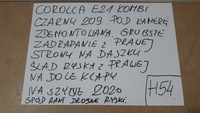 COROLLA E21 KOMBI
CZARNY 209 POD KAMERĘ
ZDEMONTOWANA GRUBSZE
ZADRAPANIE Z PRAWEJ
STRONY NA DASZKU
ŚLAD RYSKA Z PRAWEJ
NA DOLE KLAPY
NA SZYBIE 2020
SPOD RAMY DROBNE RYSKI
H54